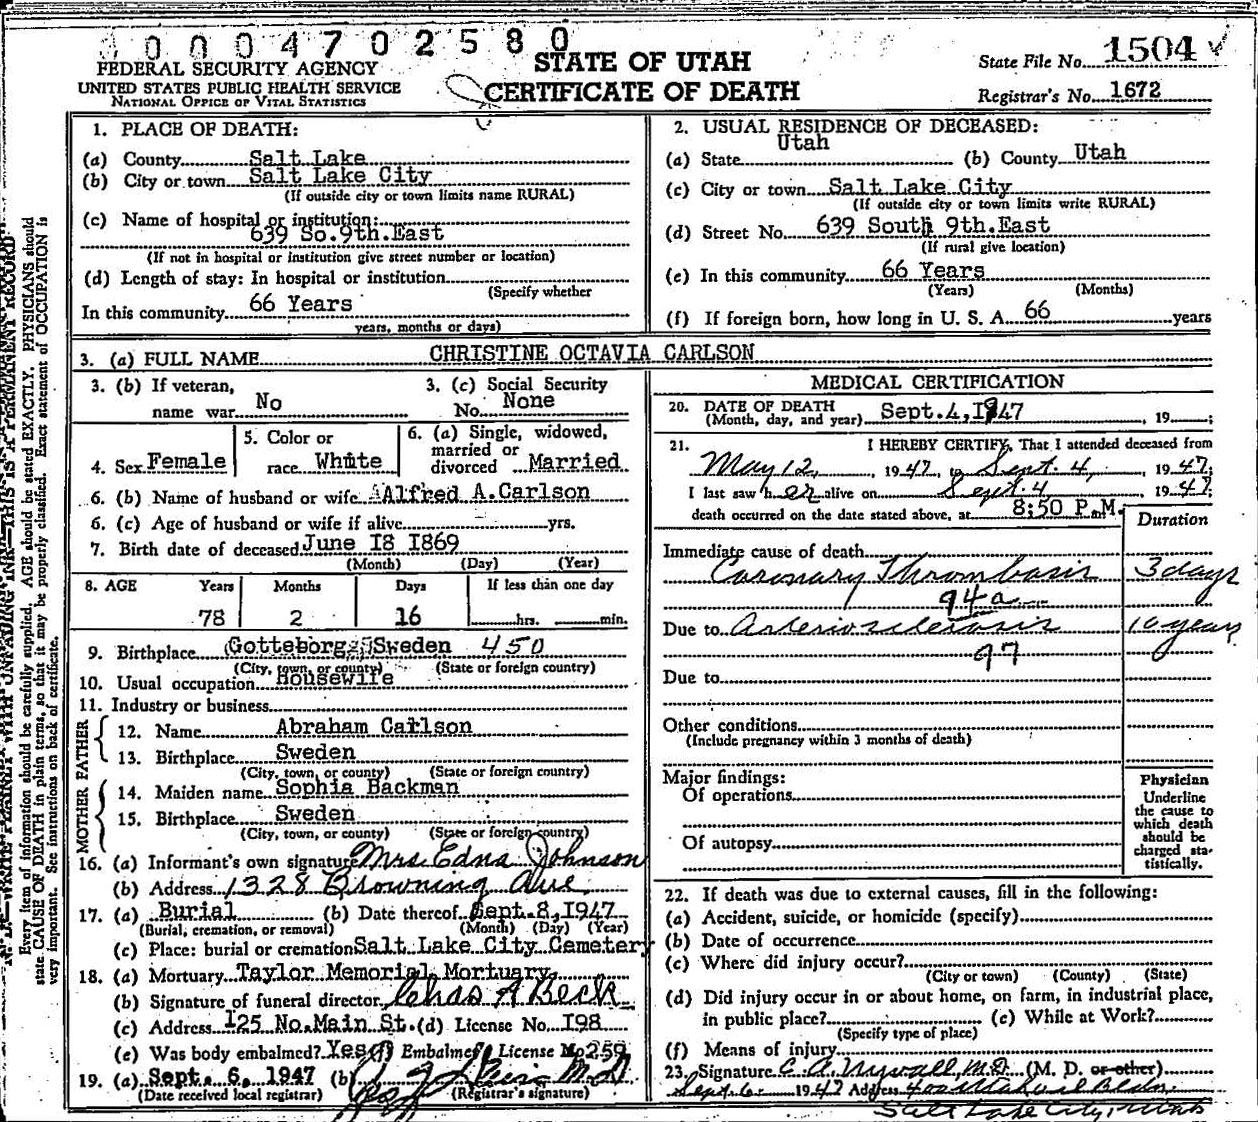 0 0 0 4 7 0 2 5 8 0
FEDERAL SECURITY AGENCY
UNITED STATES PUBLIC HEALTH SERVICE
NATIONAL OFFICE OF VITAL STATISTICS
STATE OF UTAH
CERTIFICATE OF DEATH
State File No. 1504
Registrar's No. 1672
1. PLACE OF DEATH:
(a) County Salt Lake
(b) City or town Salt Lake City
(If outside city or town limits name RURAL)
(c) Name of hospital or institution:
639 So.9th.East
(If not in hospital or institution give street number or location)
(d) Length of stay: In hospital or institution
(Specify whether
In this community 66 Years
years, months or days)
2. USUAL RESIDENCE OF DECEASED:
(a) State Utah (b) County Utah
(c) City or town Salt Lake City
(If outside city or town limits write RURAL)
(d) Street No. 639 South 9th.East
(If rural give location)
(e) In this community 66 Years
(Years) (Months)
(f) If foreign born, how long in U. S. A. 66 years
3. (a) FULL NAME CHRISTINE OCTAVIA CARLSON
3. (b) If veteran,
name war No
3. (c) Social Security
No. None
4. Sex Female
5. Color or
race White
6. (a) Single, widowed,
married or
divorced Married
6. (b) Name of husband or wife Alfred A.Carlson
6. (c) Age of husband or wife if alive yrs.
7. Birth date of deceased June I8 I869
(Month) (Day) (Year)
8. AGE Years Months Days If less than one day
78 2 16 hrs. min.
9. Birthplace Gotteborg Sweden 450
(City, town, or county) (State or foreign country)
10. Usual occupation Housewife
11. Industry or business
FATHER
12. Name Abraham Carlson
13. Birthplace Sweden
(City, town, or county) (State or foreign country)
MOTHER
14. Maiden name Sophia Backman
15. Birthplace Sweden
(City, town, or county) (State or foreign country)
16. (a) Informant's own signature Mrs. Edna Johnson
(b) Address 1328 Browning Ave.
17. (a) Burial (b) Date thereof Sept.8,I947
(Burial, cremation, or removal) (Month) (Day) (Year)
(c) Place: burial or cremation Salt Lake City Cemetery
18. (a) Mortuary Taylor Memorial Mortuary
(b) Signature of funeral director Chas A Beck
(c) Address 125 No.Main St. (d) License No. I98
(e) Was body embalmed? Yes (f) Embalmer License No 259
19. (a) Sept. 6, 1947 (b) M.D.
(Date received local registrar) (Registrar's signature)
MEDICAL CERTIFICATION
20. DATE OF DEATH
(Month, day, and year) Sept.4,I947 , 19 ;
21. I HEREBY CERTIFY, That I attended deceased from
May 12, , 1947, to Sept. 4, , 1947;
I last saw her alive on Sept. 4 , 1947;
death occurred on the date stated above, at 8:50 P.M.
Duration
Immediate cause of death
Coronary Thrombosis 3 days
94a
Due to Arteriosclerosis 10 years
97
Due to
Other conditions
(Include pregnancy within 3 months of death)
Major findings:
Of operations
Of autopsy
Physician
Underline
the cause to
which death
should be
charged sta-
tistically.
22. If death was due to external causes, fill in the following:
(a) Accident, suicide, or homicide (specify)
(b) Date of occurrence
(c) Where did injury occur?
(City or town) (County) (State)
(d) Did injury occur in or about home, on farm, in industrial place,
in public place? (e) While at Work?
(Specify type of place)
(f) Means of injury
23. Signature M.D. (M. D. or other)
Sept 6 1947 Address 400 Bldg.
Salt Lake City, Utah
Every item of information should be carefully supplied. AGE should be stated EXACTLY. PHYSICIANS should
state CAUSE OF DEATH in plain terms, so that it may be properly classified. Exact statement of OCCUPATION is
very important. See instructions on back of certificate.